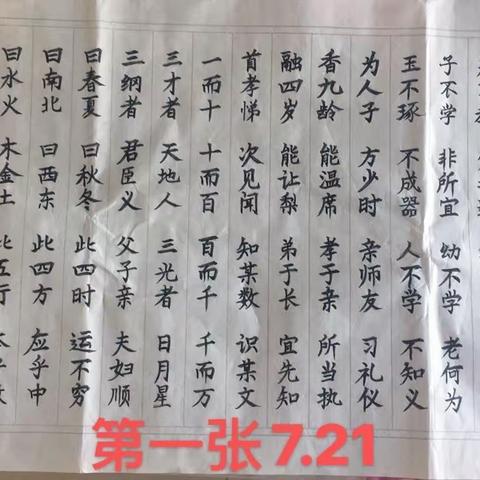 子不学 非所宜 幼不学 老何为
玉不琢 不成器 人不学 不知义
为人子 方少时 亲师友 习礼仪
香九龄 能温席 孝于亲 所当执
融四岁 能让梨 弟于长 宜先知
首孝悌 次见闻 知某数 识某文
一而十 十而百 百而千 千而万
三才者 天地人 三光者 日月星
三纲者 君臣义 父子亲 夫妇顺
曰春夏 曰秋冬 此四时 运不穷
曰南北 曰西东 此四方 应乎中
曰水火 木金土 此五行
第一张7.21